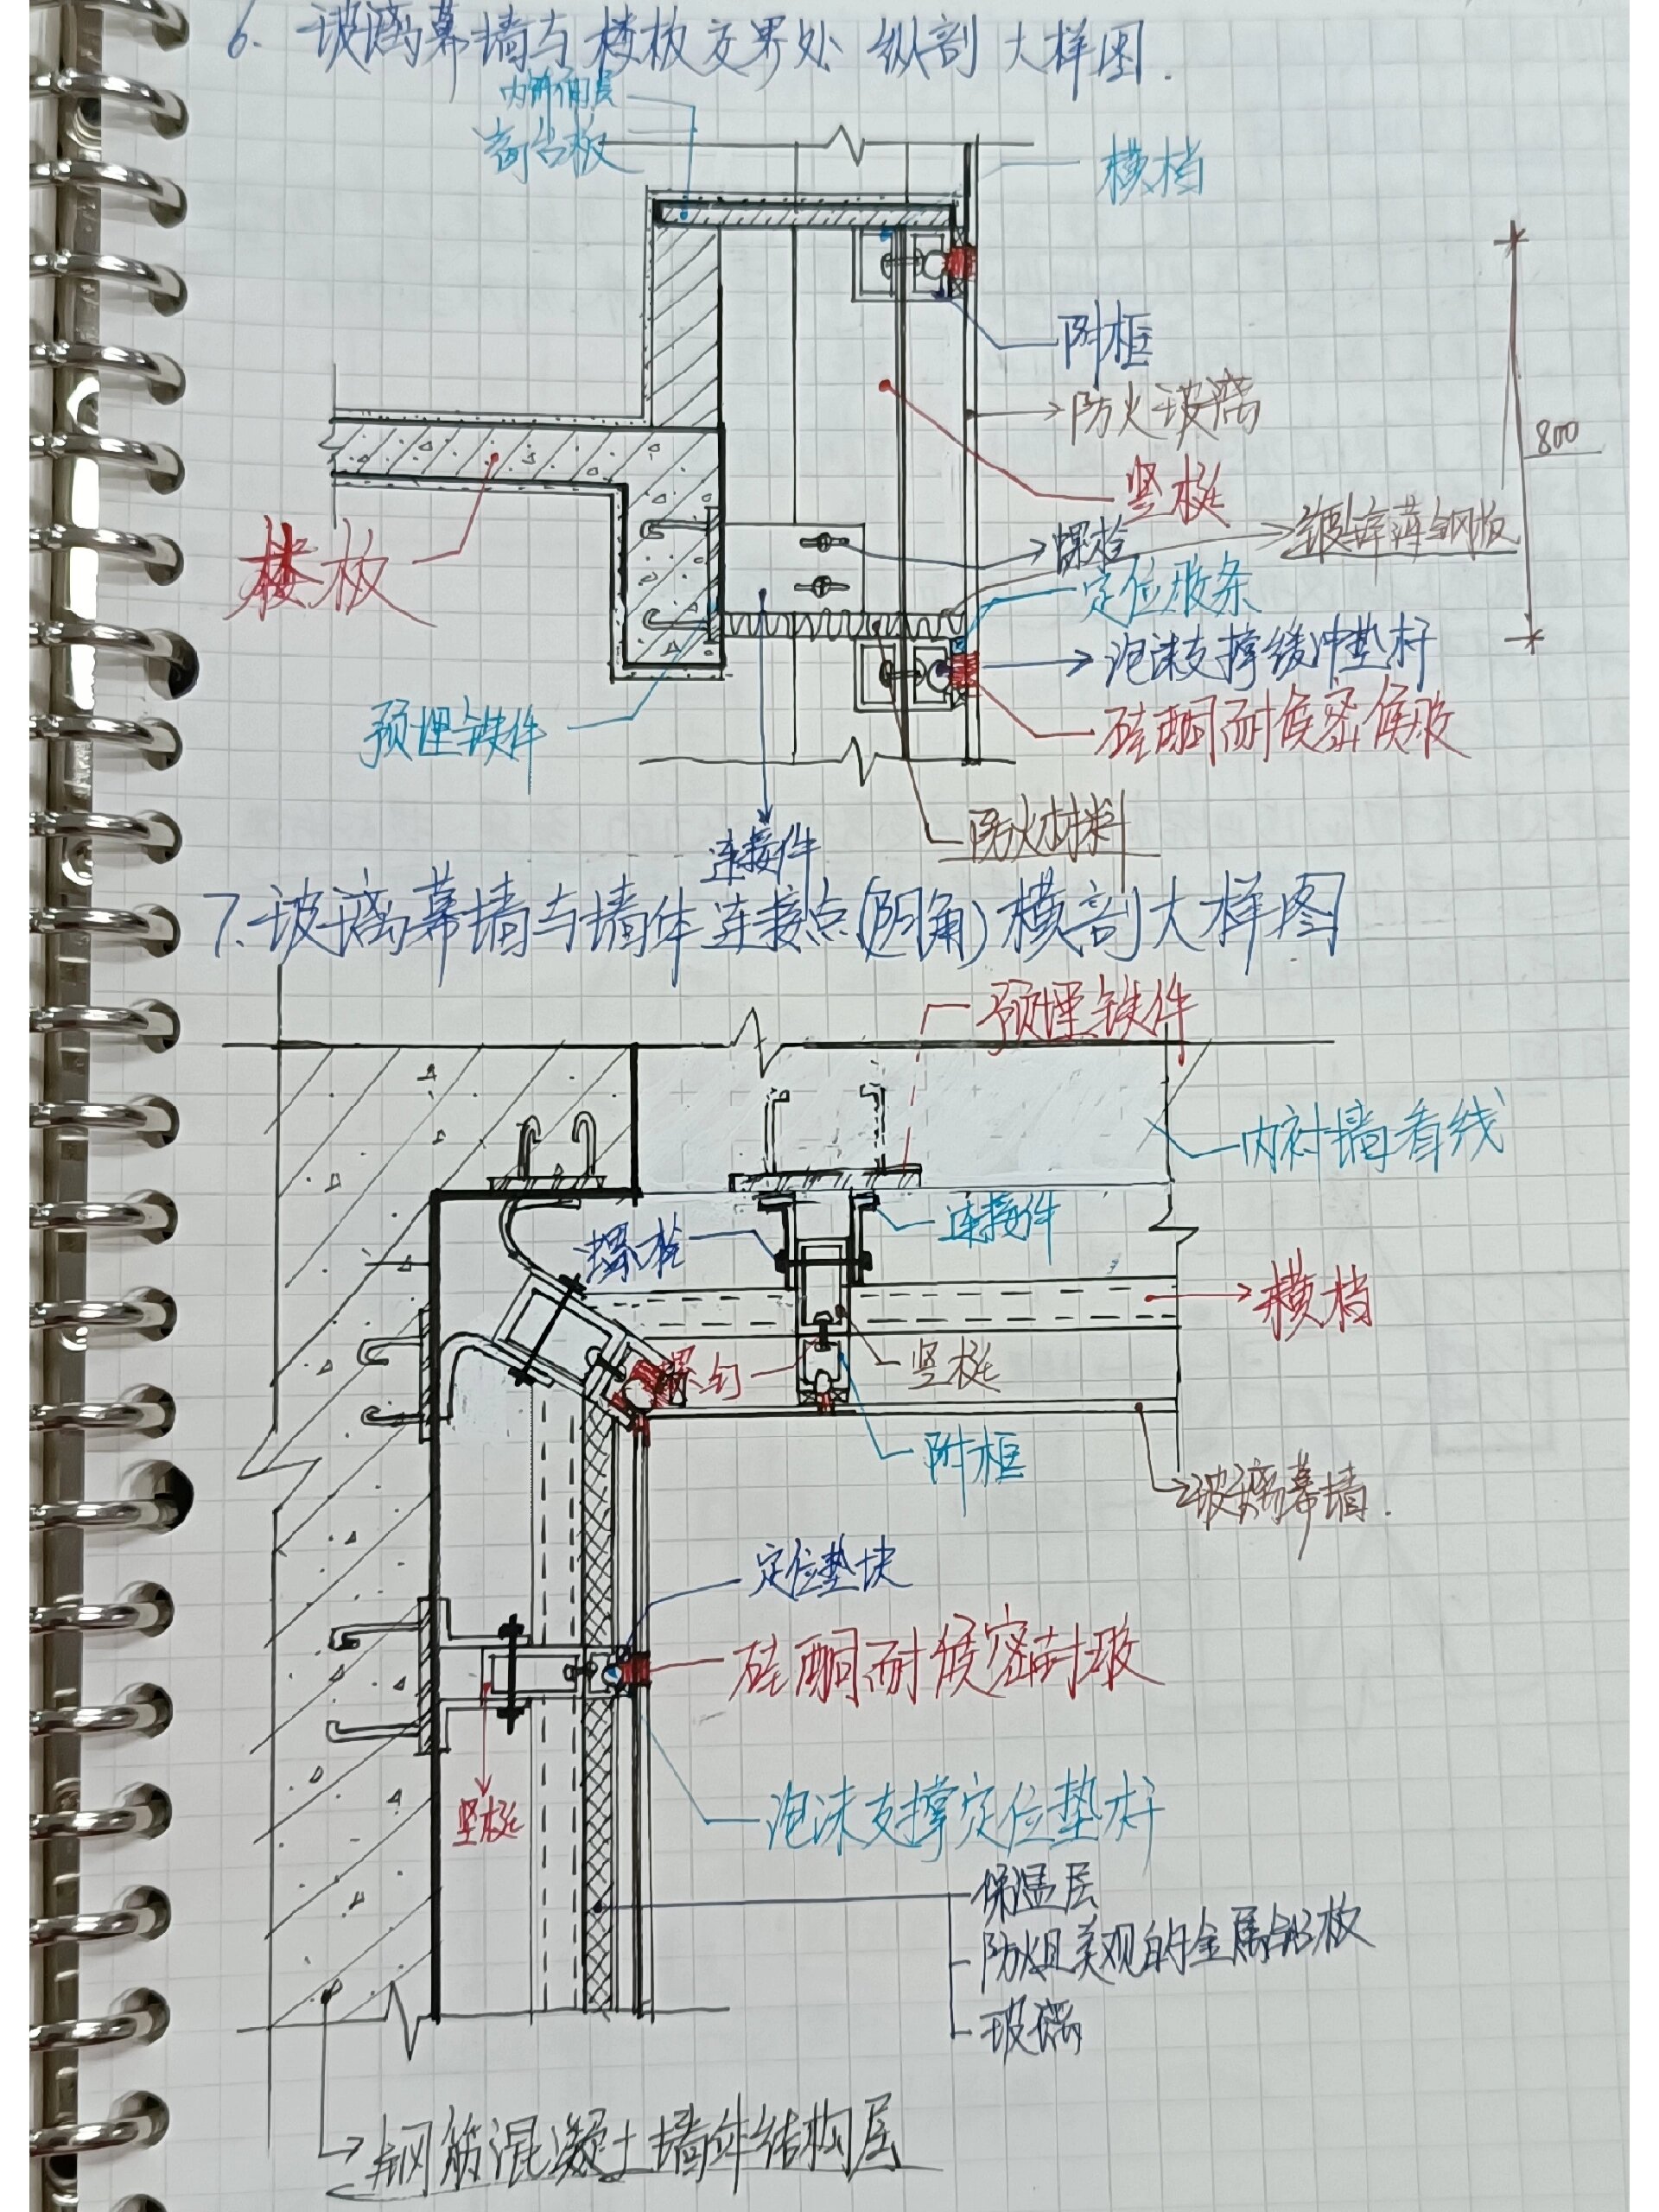 6. 玻璃幕墙与楼板交界处 纵剖大样图.
内饰面层
窗台板
横档
附框
防火玻璃
800
竖梃
螺栓
镀锌薄钢板
楼板
定位胶条
泡沫支撑缓冲垫杆
预埋铁件
硅酮耐候密候胶
连接件
防火材料
7.玻璃幕墙与墙体连接点(阴角)横剖大样图
预埋铁件
内衬墙看线
连接件
螺栓
横档
螺钉
竖梃
附框
玻璃幕墙.
定位垫块
硅酮耐候密封胶
竖梃
泡沫支撑定位垫杆
保温层
防火且美观的金属铝板
玻璃
钢筋混凝土墙体结构层